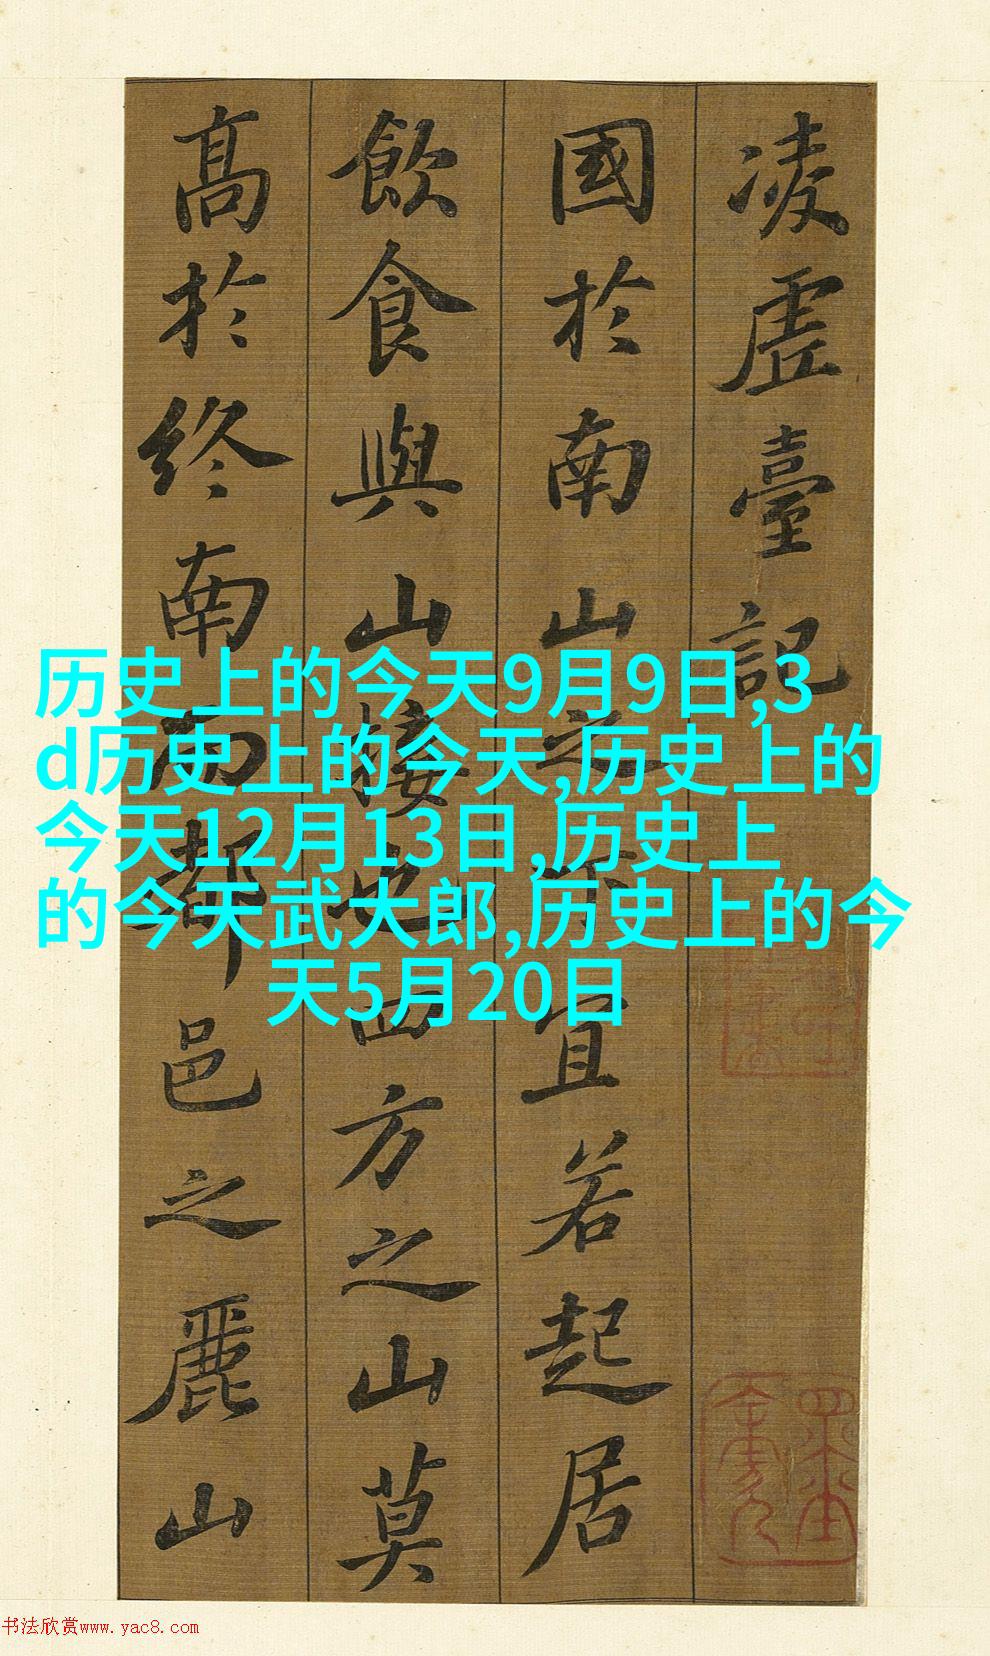 凌虛臺記
國於南山之下宜若起居
飲食與山接也四方之山莫
高於終南而都邑之麗山
历史上的今天9月9日,3
d历史上的今天,历史上的
今天12月13日,历史上
的今天武大郎,历史上的今
天5月20日
书法欣赏www.yac8.com